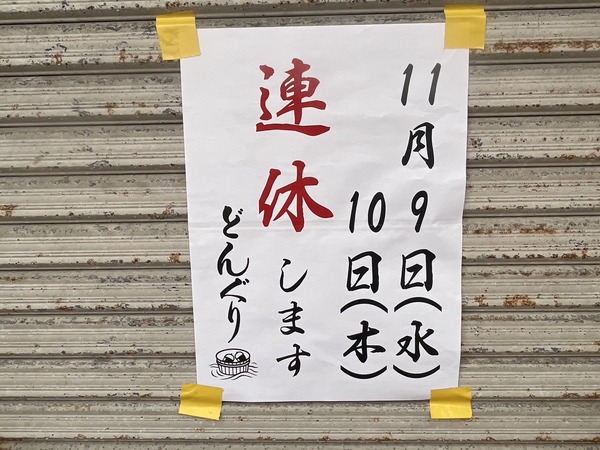 11月9日(水)
10日(木)
連休します
どんぐり